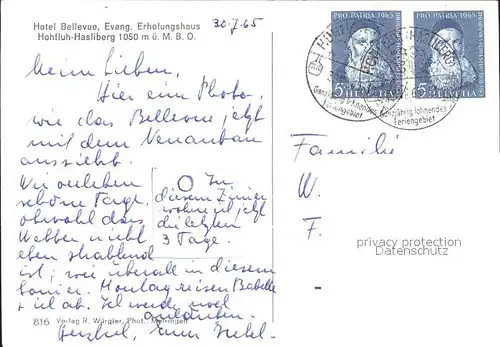 Hotel Bellevue, Evang. Erholungshaus
Hohfluh-Hasliberg 1050 m ü. M. B. O.
30.7.65
Meine Lieben.
Hier eine Photo,
wie das Bellevue jetzt
mit dem Neuanbau
aussieht.
Wir verleben
schöne Tage,
obwohl das
Wetter nicht
eben strahlend
ist, wie überall in diesem
Sommer. Montag reisen Babette
+ ich ab. Ich werde noch
anläuten.
Herzlich, Eure
O In
diesem Zimmer
wohne ich jetzt
die letzten
3 Tage.
816 Verlag R. Würgler, Phot., Meiringen
PRO PATRIA 1965
5 HELVETIA
PRO PATRIA 1965
5 HELVETIA
HOHFLUH-HASLIBERG
Ganzjährig lohnendes
Feriengebiet
Familie
W.
F.
privacy protection
Datenschutz